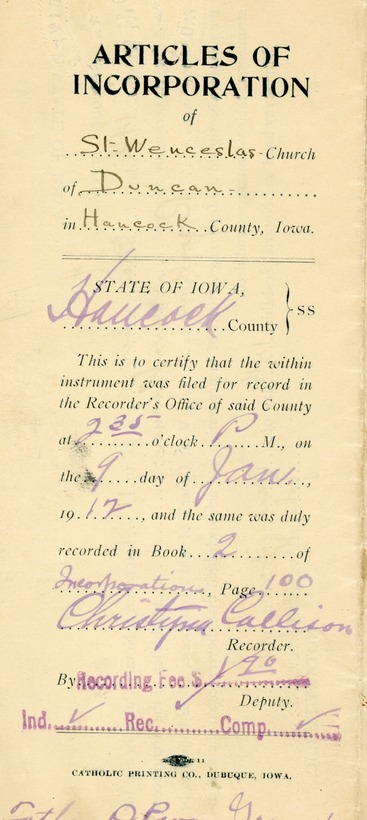 ARTICLES OF
INCORPORATION
of
St. Wenceslas Church
of Duncan
in Hancock County, Iowa.
STATE OF IOWA,
Hancock County } SS
This is to certify that the within
instrument was filed for record in
the Recorder's Office of said County
at 2 35 o'clock P M., on
the 9 day of Jan.,
1912, and the same was duly
recorded in Book 2 of
Incorporations, Page 100
Callison
Recorder.
By Recording Fee $ 1 90
Deputy.
Ind. ✓ Rec. Comp. ✓
11
CATHOLIC PRINTING CO., DUBUQUE, IOWA.